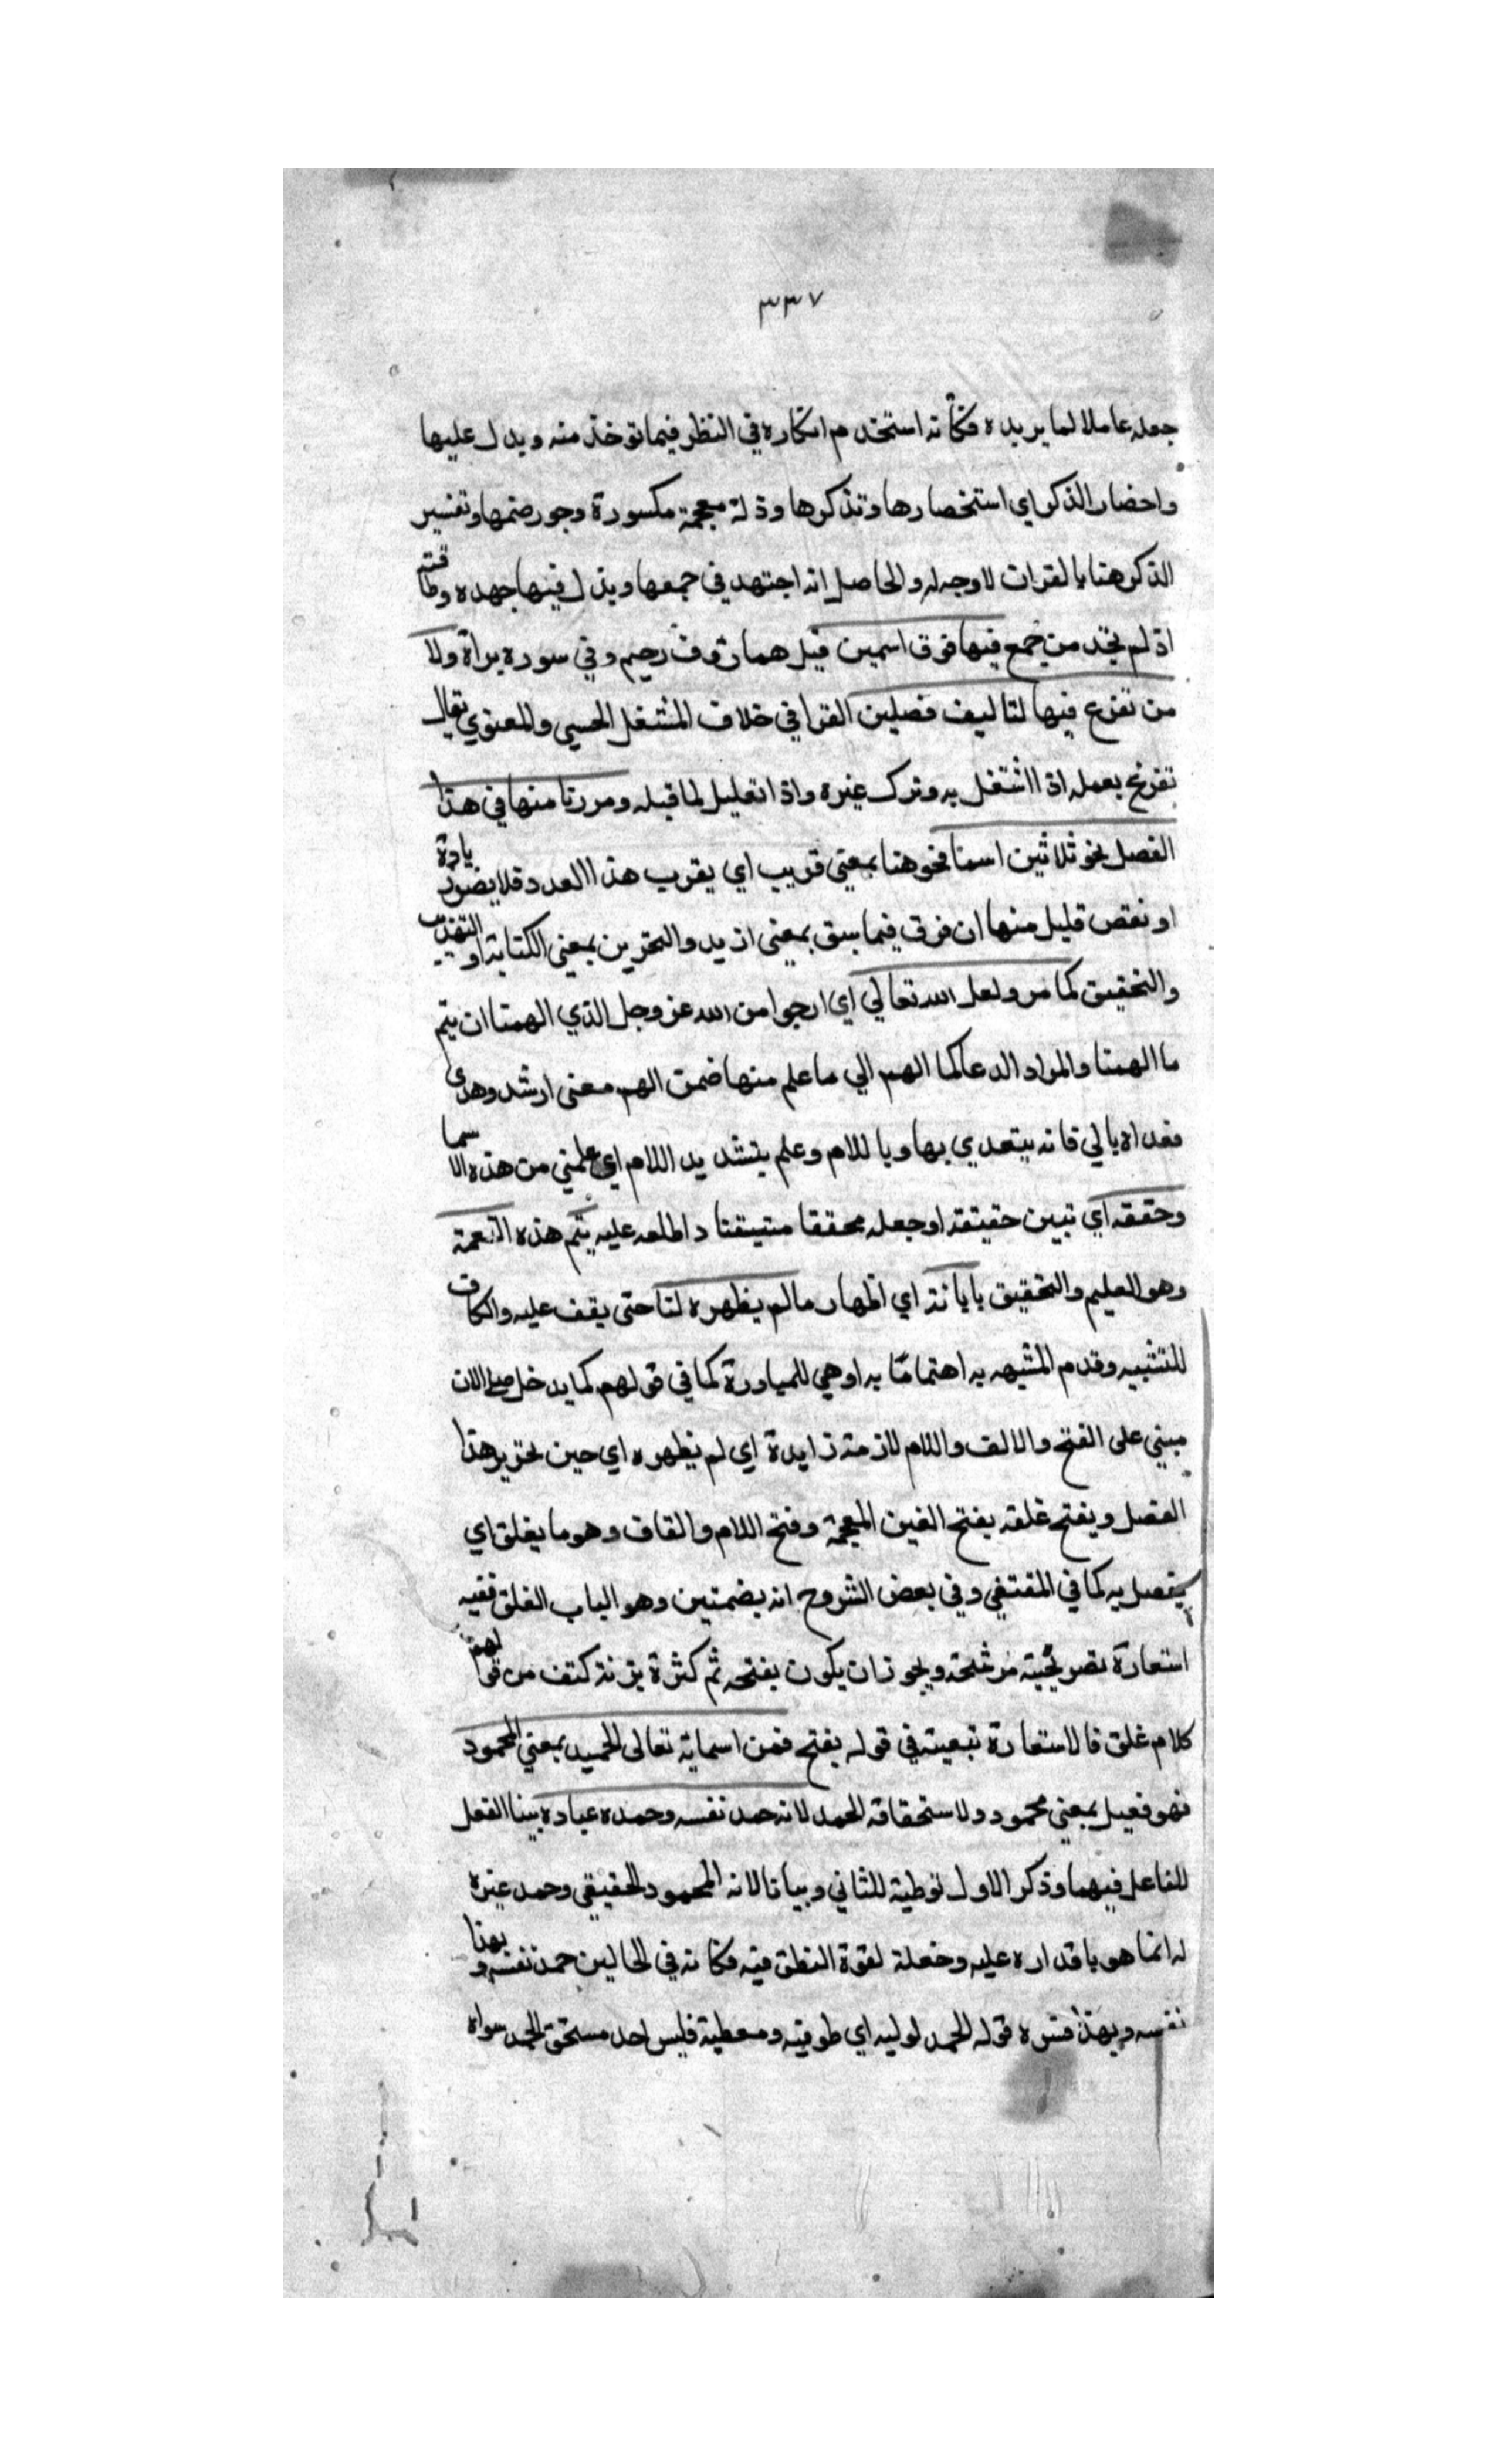 ٣٣٧
جعله عاملا لما يريده فكأنه استخدم افكاره في النظر فيما توخذ منه ويدل عليها
واحضار الذكر اي استحضارها وتذكرها وذاله معجمة مكسورة وجوز ضمها وتفسير
الذكر هنا بالقران لا وجه له والحاصل انه اجتهد في جمعها وبذل فيها جهده وطاقته
اذ لم نجد من جمع فيها فوق اسمين قيل هما رؤف رحيم وفي سورة براة ولا
من تفرع فيها لتاليف فصلين الفراغ خلاف المشتغل الحسي والمعنوي يقال
تفرغ بعمله اذا اشتغل به وترك غيره واذا تعليل لما قبله ومررنا منها في هذا
الفصل نحو ثلاثين اسما فنحو هنا بمعنى قريب اي يقرب هذا العدد فلا يضر زيادة
او نقص قليل منها ان فرق فيما سبق بمعنى ازيد والتحرير بمعنى الكتابة او التهذيب
والتحقيق كما مر ولعل الله تعالي اي ارجوا من الله عز وجل الذي الهمنا ان يتم
ما الهمنا والمراد الدعا كما الهم الي ما علم منها ضمن الهم معنى ارشد وهدى
فعداه بالي فانه يتعدي بها وباللام وعلم بتشديد اللام اي علمني من هذه الاسما
وحققه اي تبين حقيقته او جعله محققا متيقنا واطلعه عليه يتم هذه النعمة
وهو العليم والتحقيق بابانة اي اظهار ما لم يظهره لنا حتى يقف عليه والكاف
للتشبيه وقدم المشبه به اهتماما به او هي للمبادرة كما في قولهم كما يدخل صلي الان
مبني على الفتح والالف واللام لازمة زايدة اي لم يظهره اي حين تحرير هذا
الفصل ويفتح غلقه بفتح الغين المعجمة وفتح اللام والقاف وهو ما يغلق اي
يقفل به كما في المقتفي وفي بعض الشروح انه بضمتين وهو الباب الغلق ففيه
استعارة تصريحية مرشحة ويجوز ان يكون بفتحة ثم كثرة بزنة كتف من قولهم
كلام غلق فالاستعارة تبعية في قوله يفتح فمن اسمايه تعالى الحميد بمعني المحمود
فهو فعيل بمعني محمود ولاستحقاقه الحمد لانه حمد نفسه وحمده عباده ببنا الفعل
للفاعل فيهما وذكر الاول توطية للثاني وبيانا لانه المحمود الحقيقي وحمد غيره
له انما هو باقداره عليه وجعله لقوة النطق فيه فكانه في الحالين حمد نفسه وبهذا
نفسه وبهذا فسره قوله الحمد لوليه اي موفيه ومعطيه فليس احد مستحق الحمد سواه